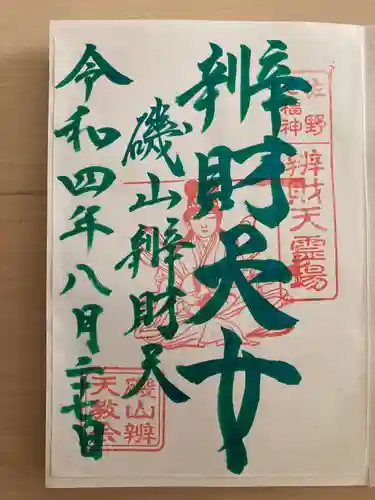 佐野
七福神
辨財天霊場
辨財天女
磯山辨財天
令和四年八月二十七日
磯山辨
天教会